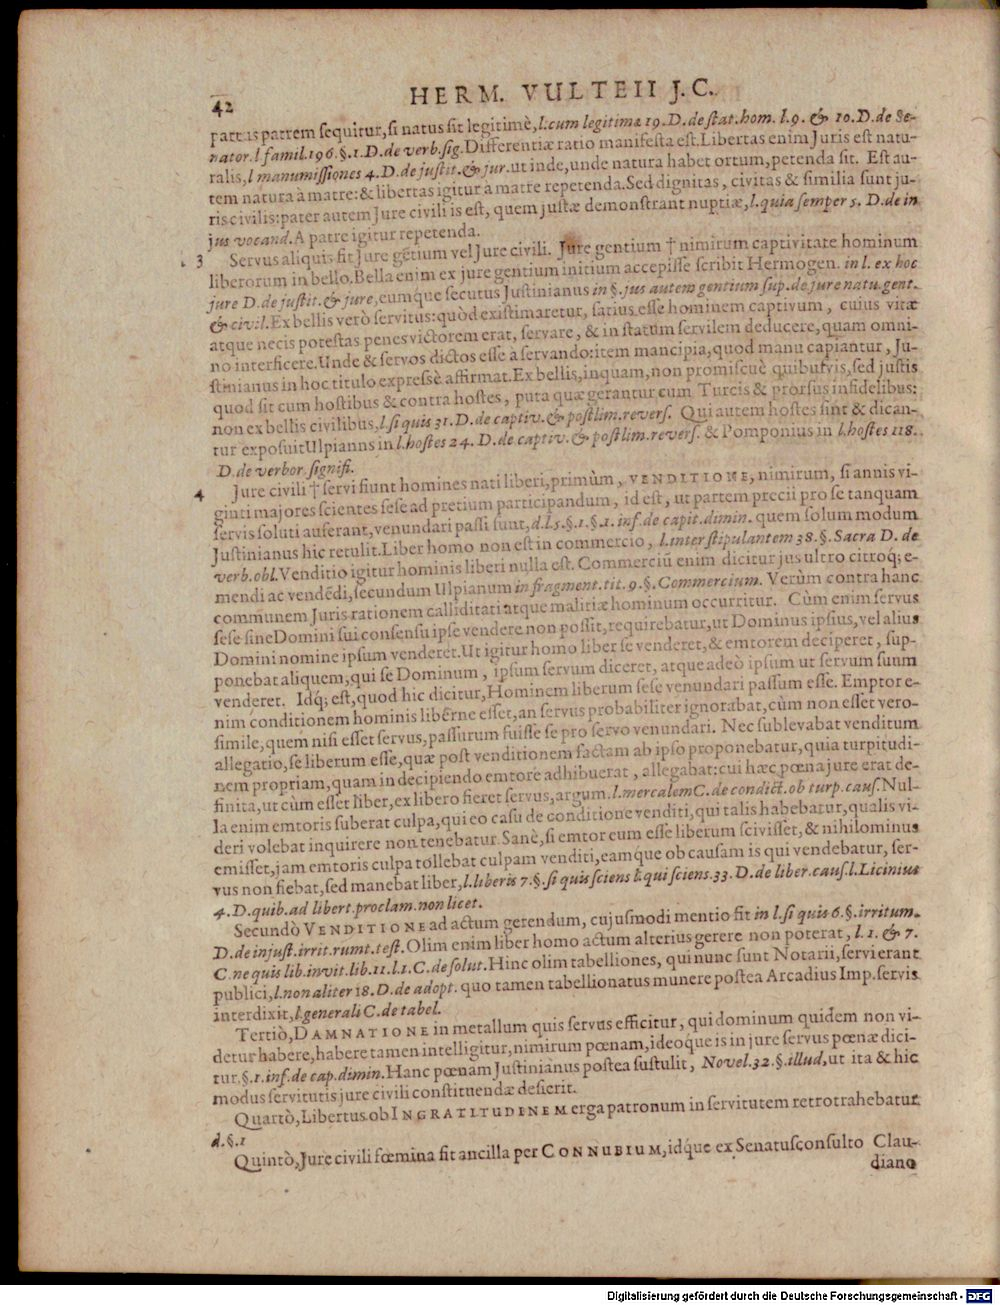 42
HERM. VULTEII J.C.
partus patrem sequitur, si natus sit legitimè, l. cum legitimæ 19. D. de stat. hom. l. 9. & 10. D. de Se-
nator. l. famil. 196. §. 1. D. de verb. sig. Differentiæ ratio manifesta est. Libertas enim Juris est natu-
ralis, l manumissiones 4. D. de justit. & jur. ut inde, unde natura habet ortum, petenda sit. Est au-
tem natura à matre: & libertas igitur à matre repetenda. Sed dignitas, civitas & similia sunt ju-
ris civilis: pater autem Jure civili is est, quem justæ demonstrant nuptiæ, l. quia semper 5. D. de in
jus vocand. A patre igitur repetenda.
3 Servus aliquis fit Jure gẽtium vel Jure civili. Jure gentium † nimirum captivitate hominum
liberorum in bello. Bella enim ex jure gentium initium accepisse scribit Hermogen. in l. ex hoc
jure D. de justit. & jure, eumque secutus Justinianus in §. jus autem gentium sup. de jure natu. gent.
& civil. Ex bellis verò servitus: quòd existimaretur, satius esse hominem captivum, cuius vitæ
atque necis potestas penes victorem erat, servare, & in statum servilem deducere, quam omni-
no interficere. Unde & servos dictos esse à servando: item mancipia, quod manu capiantur, Ju-
stinianus in hoc titulo expressè affirmat. Ex bellis, inquam, non promiscuè quibusvis, sed justis
quod sit cum hostibus & contra hostes, puta quæ gerantur cum Turcis & prorsus infidelibus:
non ex bellis civilibus, l. si quis 31. D. de captiv. & postlim. revers. Qui autem hostes sint & dican-
tur exposuit Ulpianns in l. hostes 24. D. de captiv. & postlim. revers. & Pomponius in l. hostes 118.
D. de verbor. signifi.
4 Jure civili † servi fiunt homines nati liberi, primùm, VENDITIONE, nimirum, si annis vi-
ginti majores scientes sese ad pretium participandum, id est, ut partem precii pro se tanquam
servis soluti auferant, venundari passi sunt, d. l. 5. §. 1. §. 1. inf. de capit. dimin. quem solum modum
Justinianus hic retulit. Liber homo non est in commercio, l. inter stipulantem 38. §. Sacra D. de
verb. obl. Venditio igitur hominis liberi nulla est. Commerciũ enim dicitur jus ultro citroq; e-
mendi ac vendẽdi, secundum Ulpianum in fragment. tit. 9. §. Commercium. Verùm contra hanc
communem Juris rationem calliditati atque malitiæ hominum occurritur. Cùm enim servus
sese sine Domini sui consensu ipse vendere non possit, requirebatur, ut Dominus ipsius, vel alius
Domini nomine ipsum venderet. Ut igitur homo liber se venderet, & emtorem deciperet, sup-
ponebat aliquem, qui se Dominum, ipsum servum diceret, atque adeò ipsum ut servum suum
venderet. Idq; est, quod hic dicitur, Hominem liberum sese venundari passum esse. Emptor e-
nim conditionem hominis liberne esset, an servus probabiliter ignorabat, cùm non esset vero-
simile, quem nisi esset servus, passurum fuisse se pro servo venundari. Nec sublevabat venditum
allegatio, se liberum esse, quæ post venditionem factam ab ipso proponebatur, quia turpitudi-
nem propriam, quam in decipiendo emtore adhibuerat, allegabat: cui hæc pœna jure erat de-
finita, ut cùm esset liber, ex libero fieret servus, argum. l. mercalem C. de condict. ob turp. caus. Nul-
la enim emtoris suberat culpa, qui eo casu de conditione venditi, qui talis habebatur, qualis vi-
deri volebat inquirere non tenebatur. Sanè, si emtor eum esse liberum scivisset, & nihilominus
emisset, jam emtoris culpa tollebat culpam venditi, eamque ob causam is qui vendebatur, ser-
vus non fiebat, sed manebat liber, l. liberis 7. §. si quis sciens l. qui sciens. 33. D. de liber. caus. l. Licinius
4. D. quib. ad libert. proclam. non licet.
Secundò VENDITIONE ad actum gerendum, cujusmodi mentio fit in l. si quis 6. §. irritum.
D. de injust. irrit. rumt. test. Olim enim liber homo actum alterius gerere non poterat, l. 1. & 7.
C. ne quis lib. invit. lib. 11. l. 1. C. de solut. Hinc olim tabelliones, qui nunc sunt Notarii, servi erant
publici, l. non aliter 18. D. de adopt. quo tamen tabellionatus munere postea Arcadius Imp. servis
interdixit, l. generali C. de tabel.
Tertiò, DAMNATIONE in metallum quis servus efficitur, qui dominum quidem non vi-
detur habere, habere tamen intelligitur, nimirum pœnam, ideoque is in jure servus pœnæ dici-
tur, §. 1. inf. de cap. dimin. Hanc pœnam Justinianus postea sustulit, Novel. 32. §. illud, ut ita & hic
modus servitutis jure civili constituendæ desierit.
Quartò, Libertus ob INGRATITUDINEM erga patronum in servitutem retrotrahebatur
d. §. 1
Quintò, Jure civili fœmina fit ancilla per CONNUBIUM, idque ex Senatusconsulto Clau-
diano
Digitalisierung gefördert durch die Deutsche Forschungsgemeinschaft - DFG